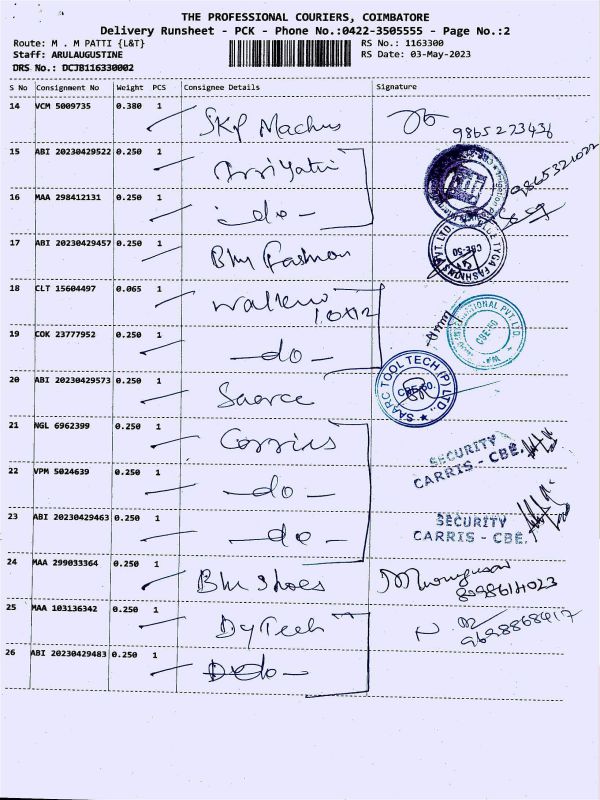 THE PROFESSIONAL COURIERS, COIMBATORE
Delivery Runsheet - PCK - Phone No.:0422-3505555 - Page No.:2
Route: M . M PATTI {L&T} RS No.: 1163300
Staff: ARULAUGUSTINE RS Date: 03-May-2023
DRS No.: DCJB116330002
S No Consignment No Weight PCS Consignee Details Signature
14 VCM 5009735 0.380 1
9865273436
15 ABI 20230429522 0.250 1
9865321022
16 MAA 298412131 0.250 1
- do -
17 ABI 20230429457 0.250 1
Blu Fashion
BLUE TYGA FASHIONS PVT. LTD. CBE-50
18 CLT 15604497 0.065 1
19 COK 23777952 0.250 1
- do -
INTERNATIONAL PVT. LTD. CBE-50
20 ABI 20230429573 0.250 1
Saarce
SAARC TOOL TECH (P) LTD., CBE-50.
21 NGL 6962399 0.250 1
Carris
SECURITY
CARRIS - CBE.
22 VPM 5024639 0.250 1
- do -
23 ABI 20230429463 0.250 1
- do -
SECURITY
CARRIS - CBE.
24 MAA 299033364 0.250 1
Blu Shoes
25 MAA 103136342 0.250 1
DyTech
9698868417
26 ABI 20230429483 0.250 1
do -